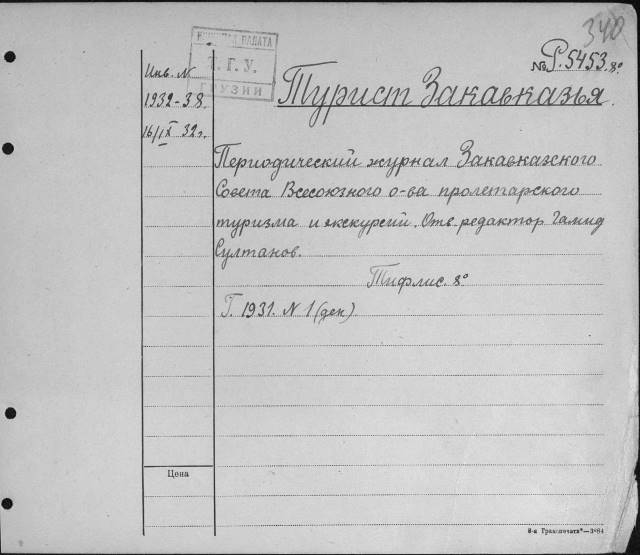 340
№ Р.5453.8°
КНИЖНАЯ ПАЛАТА
Т.Г.У.
ГРУЗИИ
Инв. N
1932-38
16/IX 32 г.
Турист Закавказья.
Периодический журнал Закавказского
Совета Всесоюзного о-ва пролетарского
туризма и экскурсий. Отв. редактор Гамид
Султанов.
Тифлис. 8°
Г. 1931. N 1 (дек)
Цена